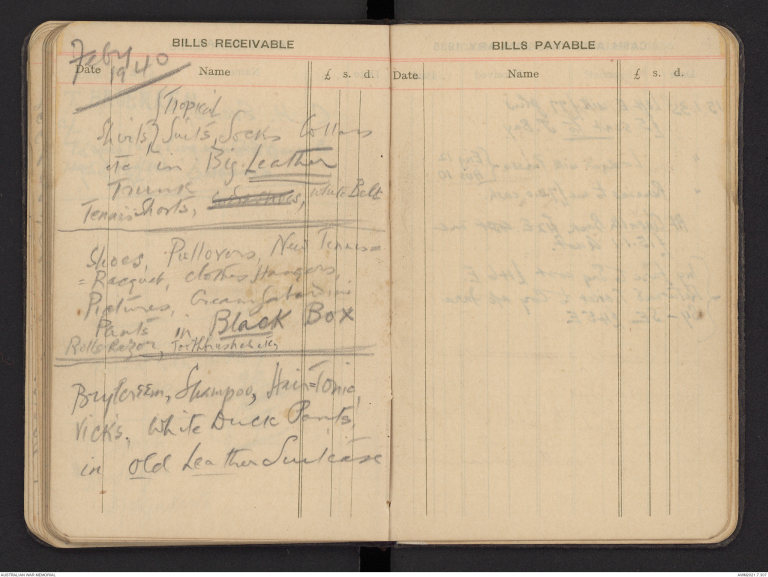 BILLS RECEIVABLE
Feby
1940
Date Name £ s. d.
Tropical
Shirts, Suits, Socks Collars
etc in Big Leather
Trunk
Tennis Shorts, White Belt
Shoes, Pullovers, New Tennis=
=Racquet, Clothes Hangers,
Pictures, Cream Gabardine
Pants in Black Box
Rolls Razor, Toothbrushes etc
Brylcreem, Shampoo, Hair=Tonic,
Vicks, White Duck Pants,
in old Leather Suitcase
BILLS PAYABLE
Date Name £ s. d.
AUSTRALIAN WAR MEMORIAL